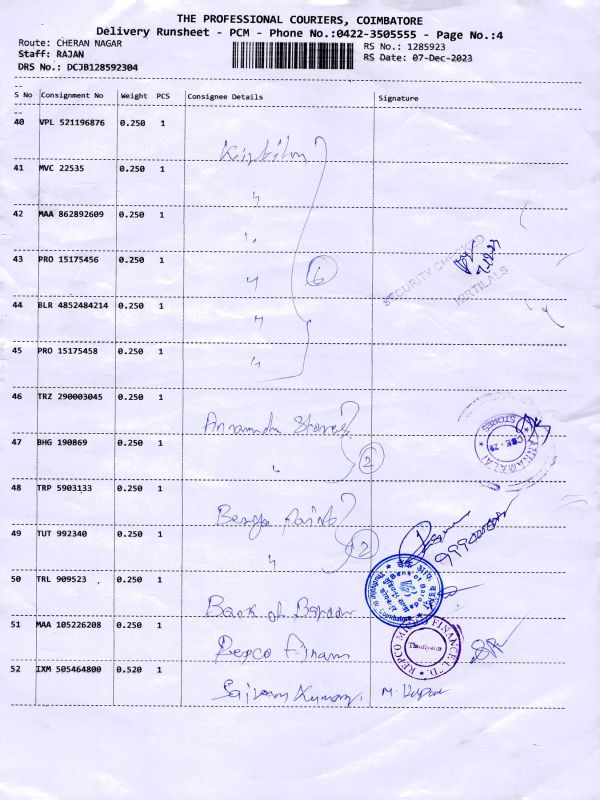 THE PROFESSIONAL COURIERS, COIMBATORE
Delivery Runsheet - PCM - Phone No.:0422-3505555 - Page No.:4
Route: CHERAN NAGAR
RS No.: 1285923
Staff: RAJAN
RS Date: 07-Dec-2023
DRS No.: DCJB128592304
S No Consignment No Weight PCS Consignee Details Signature
40 VPL 521196876 0.250 1
41 MVC 22535 0.250 1
42 MAA 862892609 0.250 1
43 PRO 15175456 0.250 1
6
SECURITY CHECKED
KIRTILALS
44 BLR 4852484214 0.250 1
45 PRO 15175458 0.250 1
46 TRZ 290003045 0.250 1
Stores
STORES
47 BHG 190869 0.250 1
2
48 TRP 5903133 0.250 1
49 TUT 992340 0.250 1
2
50 TRL 909523 0.250 1
Bank of
51 MAA 105226208 0.250 1
Repco
52 IXM 505464800 0.520 1
Kumar